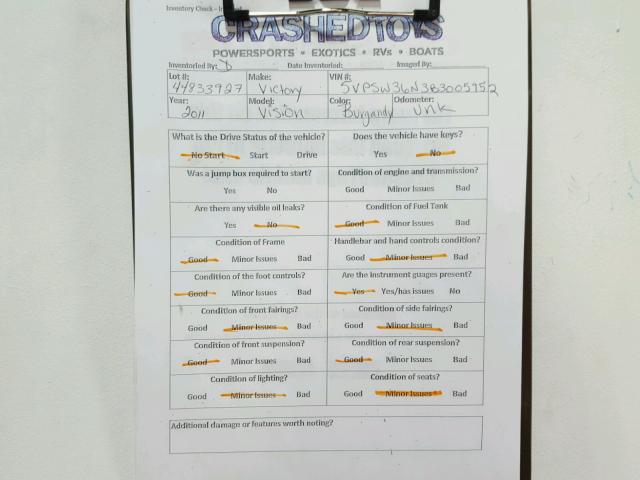 Inventory Check - In
CRASHEDTOYS
POWERSPORTS • EXOTICS • RVs • BOATS
Inventoried By: D Date Inventoried: Imaged By:
Lot #: Make: VIN #:
44833927 Victory 5VPSW36N3B3005952
Year: Model: Color: Odometer:
2011 Vision Burgandy Unk
What is the Drive Status of the vehicle? Does the vehicle have keys?
No Start Start Drive Yes No
Was a jump box required to start? Condition of engine and transmission?
Yes No Good Minor Issues Bad
Are there any visible oil leaks? Condition of Fuel Tank
Yes No Good Minor Issues Bad
Condition of Frame Handlebar and hand controls condition?
Good Minor Issues Bad Good Minor Issues Bad
Condition of the foot controls? Are the instrument guages present?
Good Minor Issues Bad Yes Yes/has issues No
Condition of front fairings? Condition of side fairings?
Good Minor Issues Bad Good Minor Issues Bad
Condition of front suspension? Condition of rear suspension?
Good Minor Issues Bad Good Minor Issues Bad
Condition of lighting? Condition of seats?
Good Minor Issues Bad Good Minor Issues Bad
Additional damage or features worth noting?